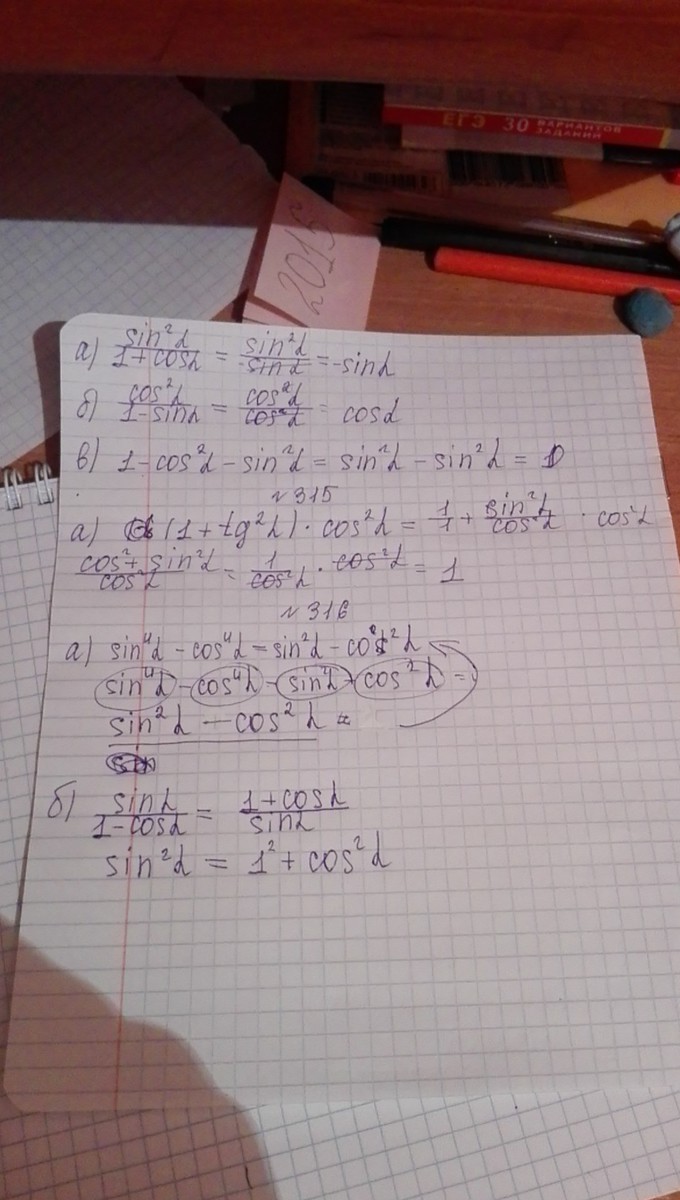 ЕГЭ 30 ВАРИАНТОВ
ЗАДАНИЙ
2015
а) sin²α/1+cosα = sin²α/sinα = -sinα
б) cos²α/1-sinα = cos²α/cos²α = cosα
в) 1-cos²α-sin²α = sin²α-sin²α = 0
№315
а) (1+tg²α)·cos²α = 1/1 + sin²α/cos²α · cos²α
cos²+sin²α/cos²α = 1/cos²α · cos²α = 1
№316
а) sin⁴α-cos⁴α=sin²α-cos²α
sin⁴α-cos⁴α-sin²α+cos²α =
sin²α-cos²α =
б) sinα/1-cosα = 1+cosα/sinα
sin²α = 1²+cos²α